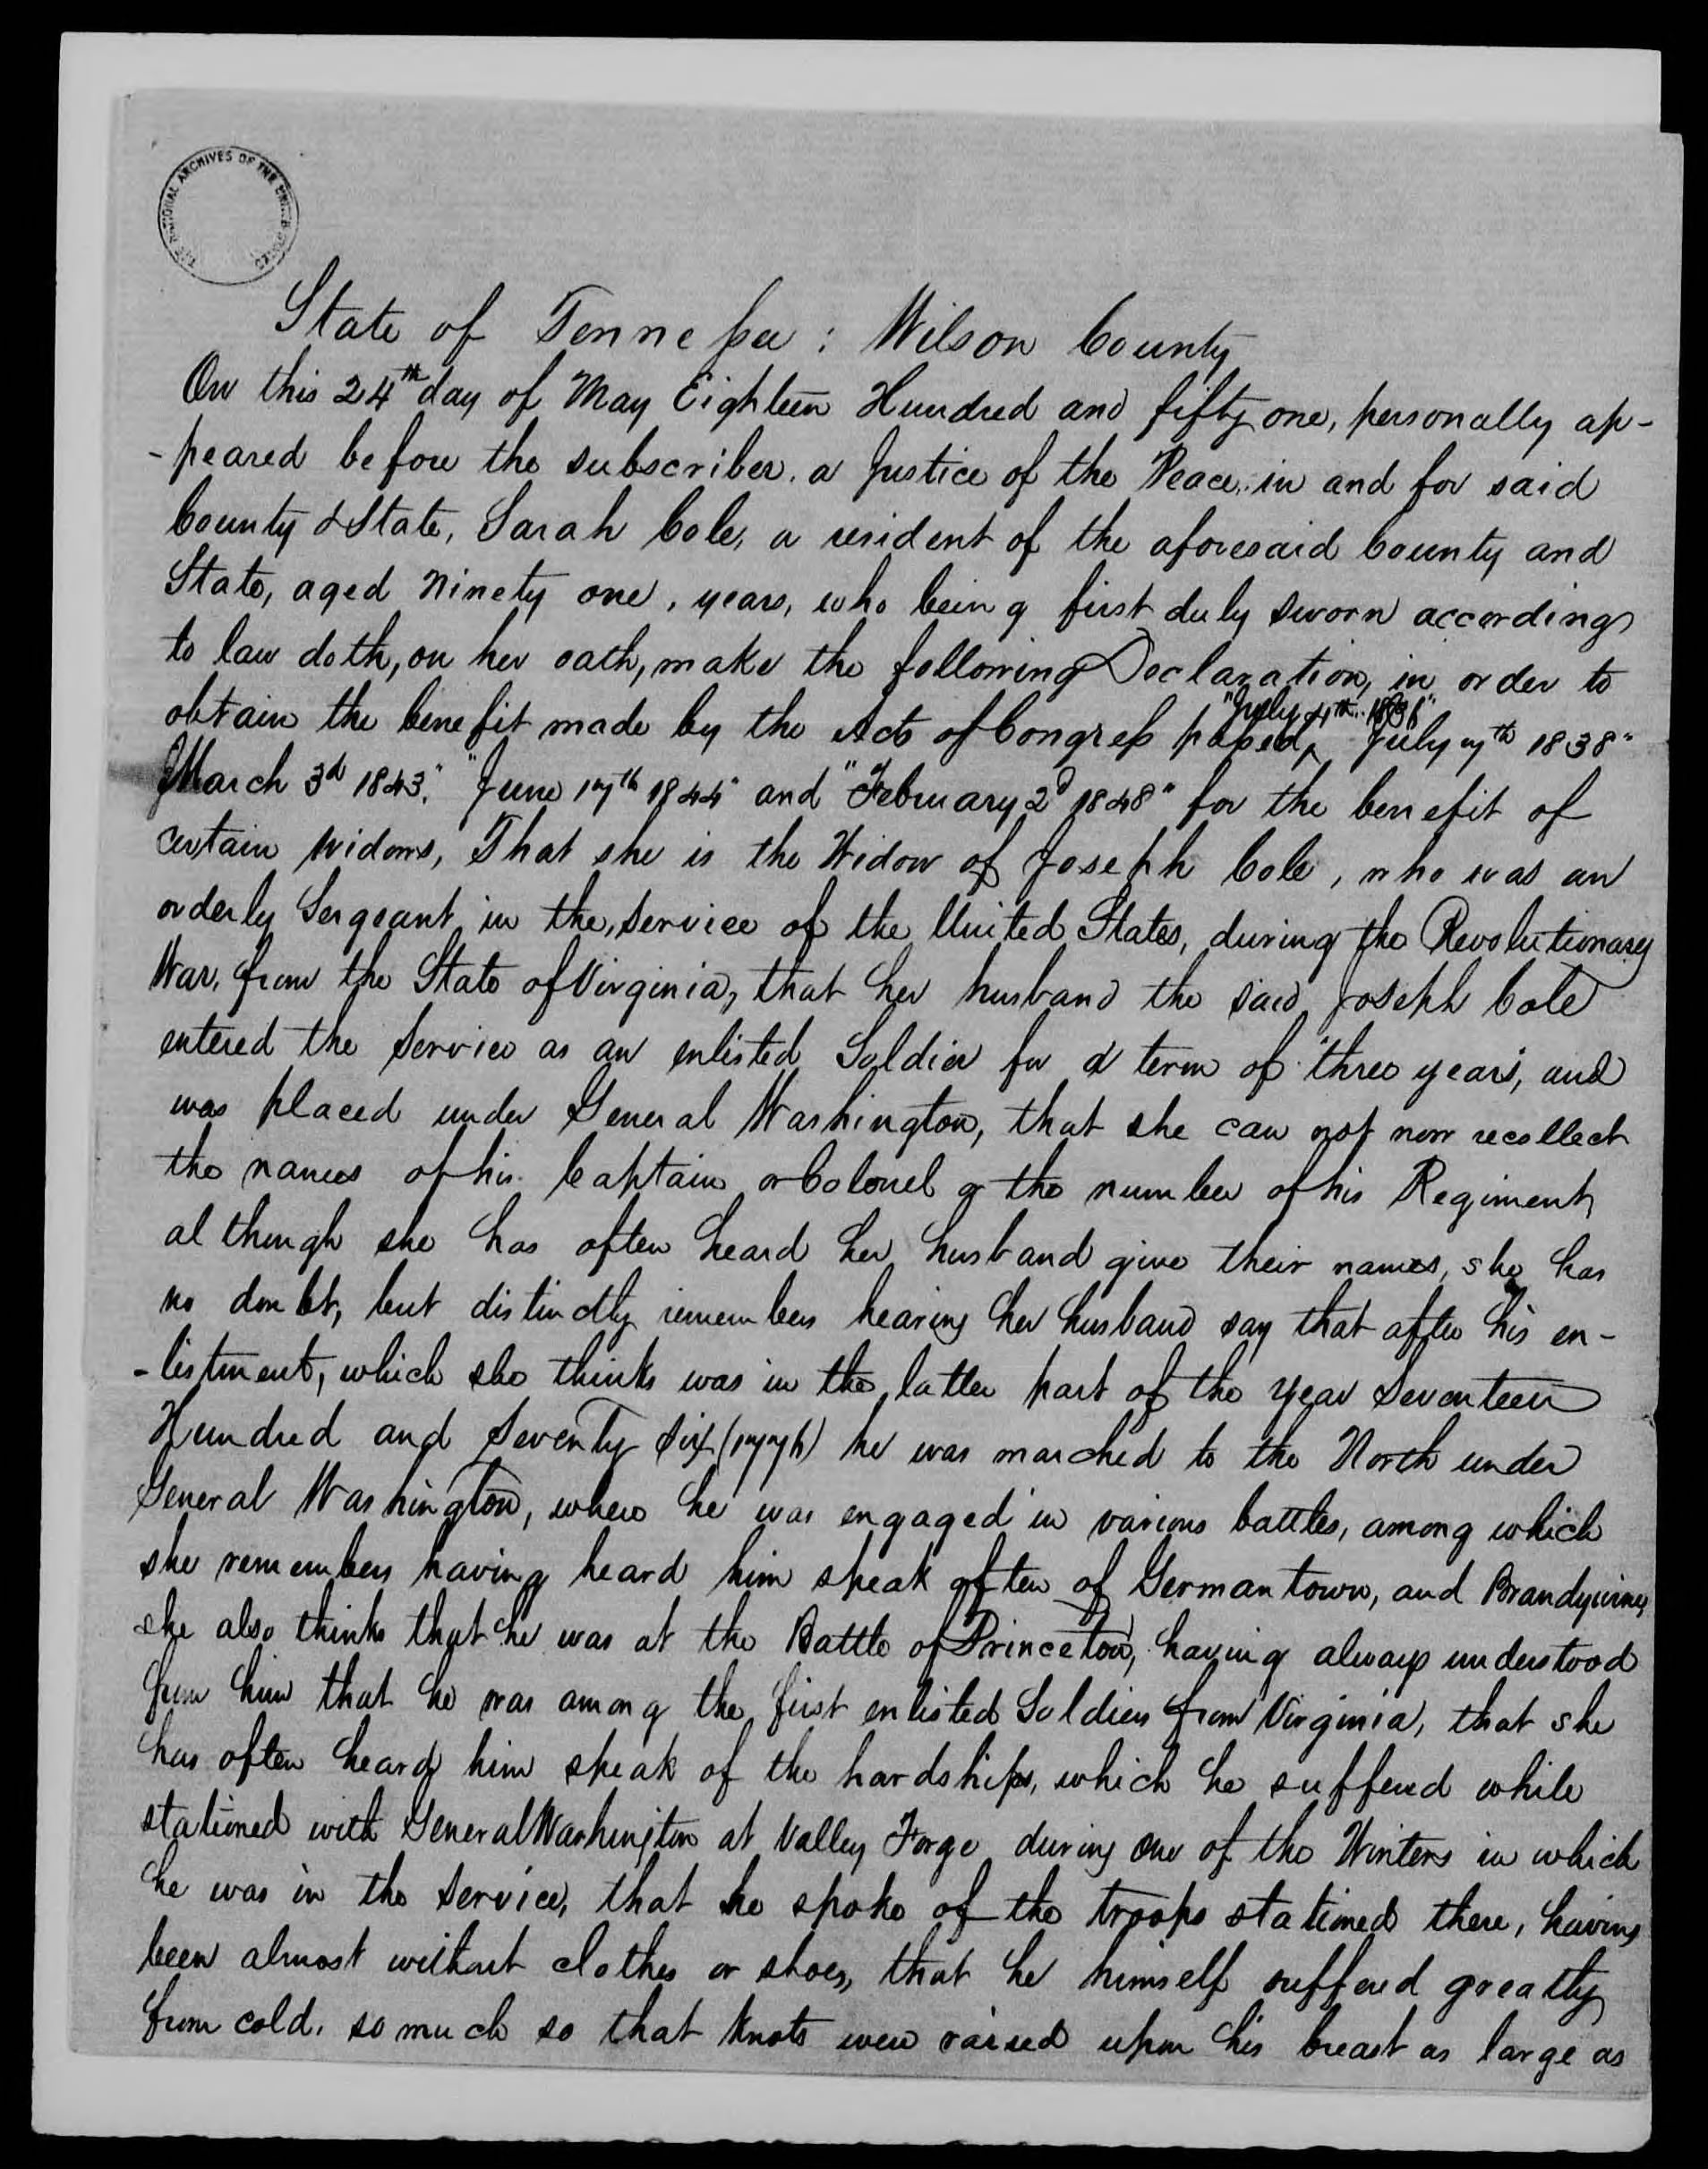 THE NATIONAL ARCHIVES OF THE UNITED STATES
State of Tennessee : Wilson County
On this 24th day of May Eighteen Hundred and fifty one, personally ap-
-peared before the subscriber. a Justice of the Peace, in and for said
County & State, Sarah Cole, a resident of the aforesaid County and
State, aged Ninety one, years, who being first duly sworn according
to law doth, on her oath, make the following Declaration, in order to
"July 4th 1836"
obtain the benefit made by the Acts of Congress passed, July 7th 1838"
March 3d 1843." "June 17th 1844" and "February 2d 1848" for the benefit of
certain Widows, That she is the Widow of Joseph Cole, who was an
orderly Sergeant in the, Service of the United States, during the Revolutionary
War, from the State of Virginia, that her husband the said Joseph Cole
entered the Service as an enlisted Soldier for a term of three years, and
was placed under General Washington, that she can not now recollect
the names of his Captain or Colonel or the number of his Regiment
although she has often heard her husband give their names, she has
no doubt, but distinctly remembers hearing her husband say that after his en-
-listment, which she thinks was in the latter part of the year Seventeen
Hundred and Seventy Six (1776) he was marched to the North under
General Washington, where he was engaged in various battles, among which
she remembers having heard him speak often of Germantown, and Brandywine,
she also thinks that he was at the Battle of Princeton, having always understood
from him that he was among the first enlisted Soldiers from Virginia, that she
has often heard him speak of the hardships, which he suffered while
stationed with General Washington at Valley Forge during one of the Winters in which
he was in the Service, that he spoke of the troops stationed there, having
been almost without clothes or shoes, that he himself suffered greatly
from cold, so much so that knots were raised upon his breast as large as